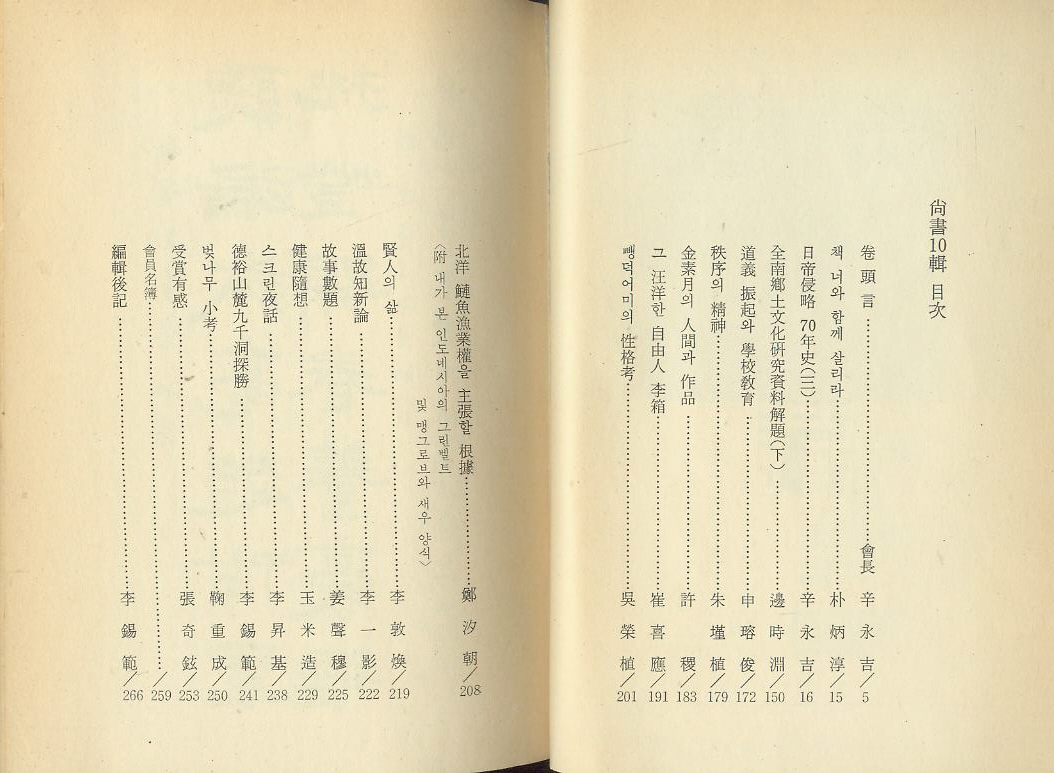 尙書10輯 目次
卷頭言 …… 會長 辛永吉／5
책 너와 함께 살리라 …… 朴炳淳／15
日帝侵略 70年史(三) …… 辛永吉／16
全南鄕土文化硏究資料解題(下) …… 邊時淵／150
道義 振起와 學校敎育 …… 申瑢俊／172
秩序의 精神 …… 朱瑾植／179
金素月의 人間과 作品 …… 許稷／183
그 汪洋한 自由人 李箱 …… 崔喜應／191
뺑덕어미의 性格考 …… 吳榮植／201
北洋 鰱魚漁業權을 主張할 根據 …… 鄭汐朝／208
〈附 내가 본 인도네시아의 그린벨트
및 맹그로브와 새우 양식〉
賢人의 삶 …… 李敦煥／219
溫故知新論 …… 李一影／222
故事數題 …… 姜聲穆／225
健康隨想 …… 玉米造／229
스크린夜話 …… 李昇基／238
德裕山麓九千洞探勝 …… 李錫範／241
벚나무 小考 …… 鞠重成／250
受賞有感 …… 張奇鉉／253
會員名簿 …… ／259
編輯後記 …… 李錫範／266